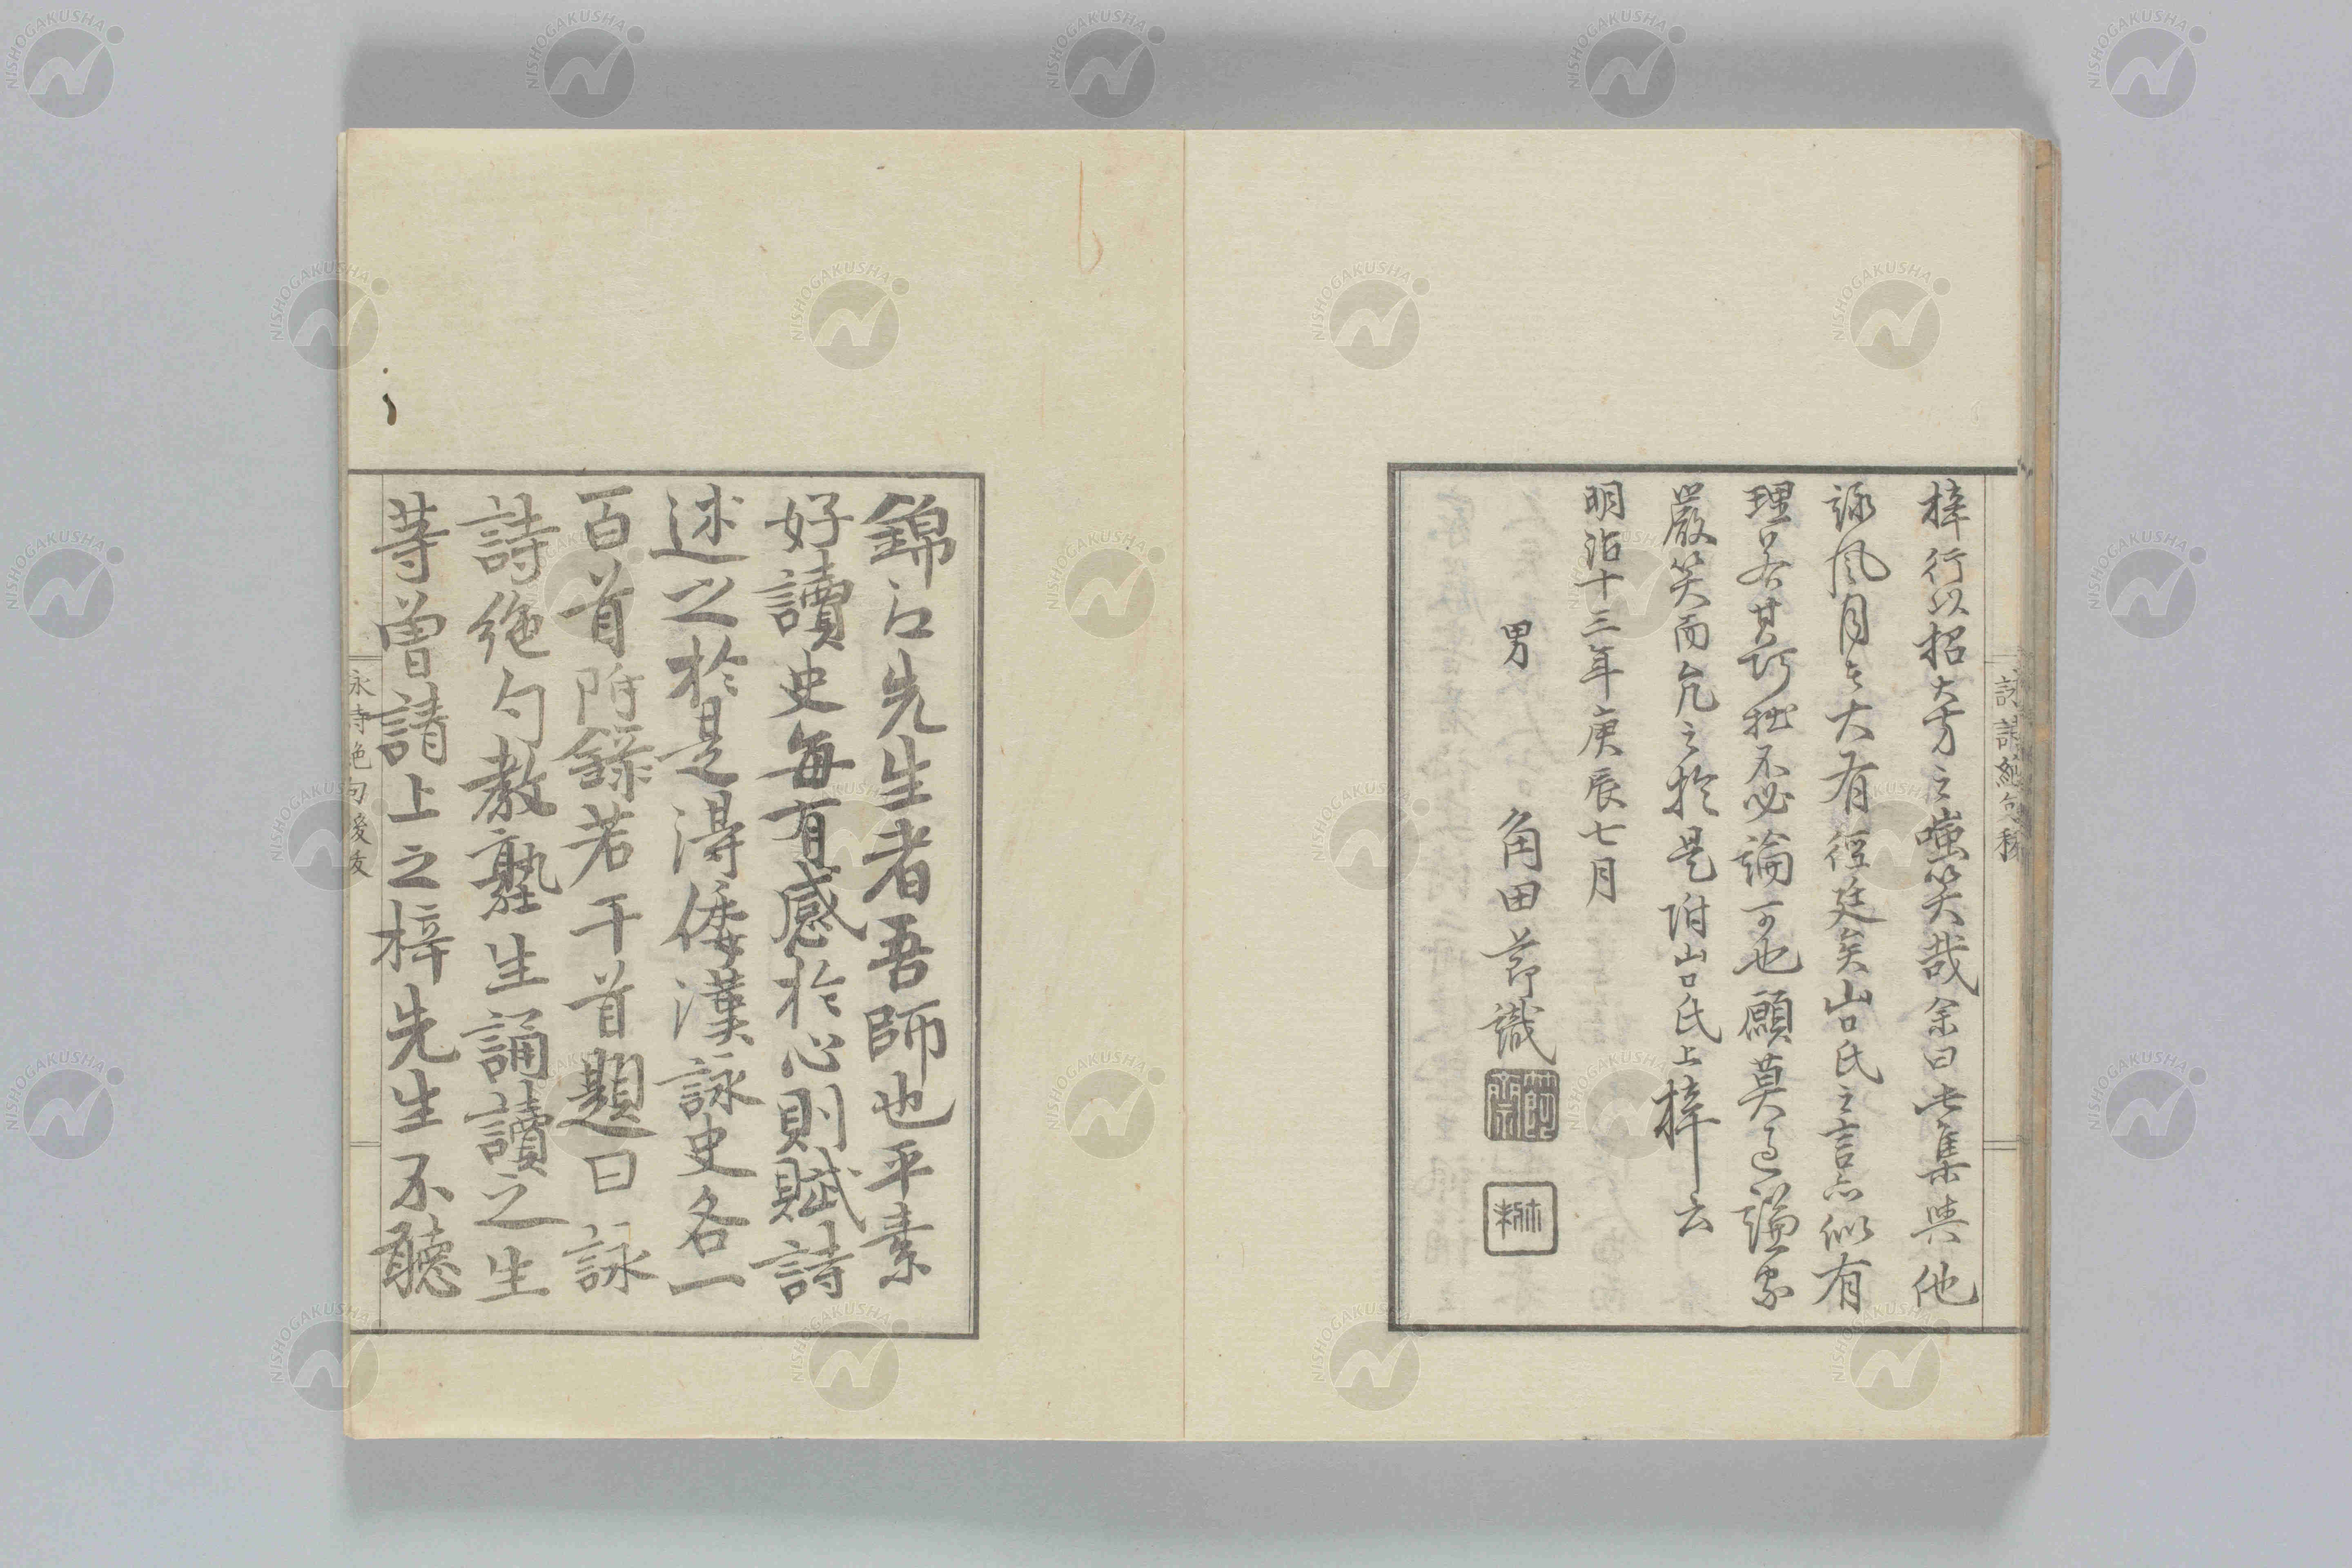 梓行以招大方之嗤笑哉余曰此集與他
詠風月者大有徑廷矣山口氏之言亦似有
理若其巧拙不必論可也願莫過謙家
嚴笑而允之於是附山口氏上梓云
明治十三年庚辰七月
男 角田節識
錦江先生者吾師也平素
好讀史每有感於心則賦詩
述之於是得倭漢詠史各一
百首附錄若干首題曰詠
詩絶句教塾生誦讀之生
等曾請上之梓先生不聽
NISHOGAKUSHA